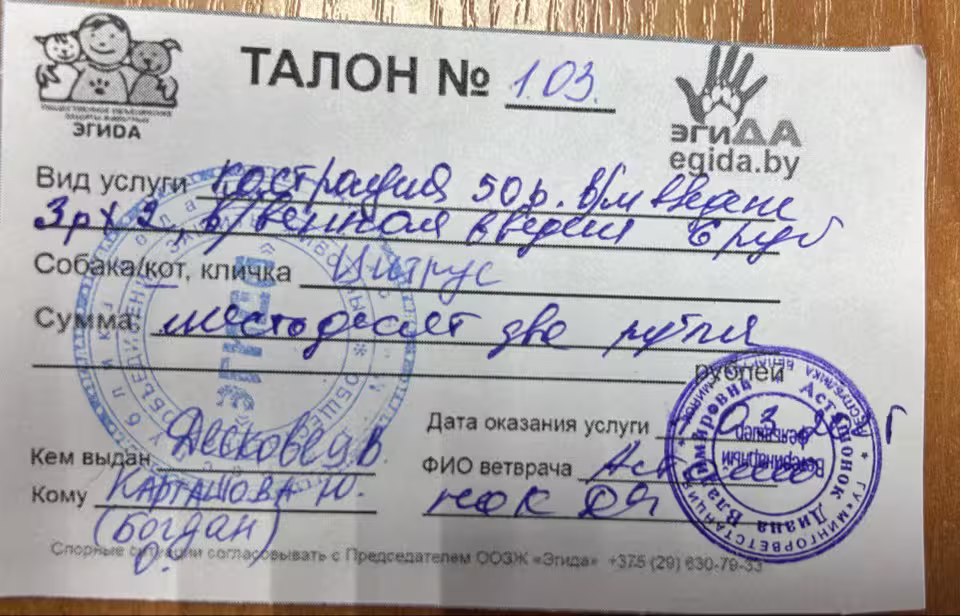 ТАЛОН № 1.03.
ЭГИДА
эгиДА
egida.by
Вид услуги кастрация 50р. в/м введение
3р х 2, в/венная введен 6 руб
Собака/кот, кличка Цитрус
Сумма: шестьдесят две рубля
рублей
Дата оказания услуги 03
Кем выдан
ФИО ветврача
Кому Карташова Ю.
(Богдан)
Спорные ситуации согласовывать с Председателем ООЗЖ «Эгида» +375 (29) 630-79-33
Ветеринарный фельдшер
Астапионок Диана Владимировна